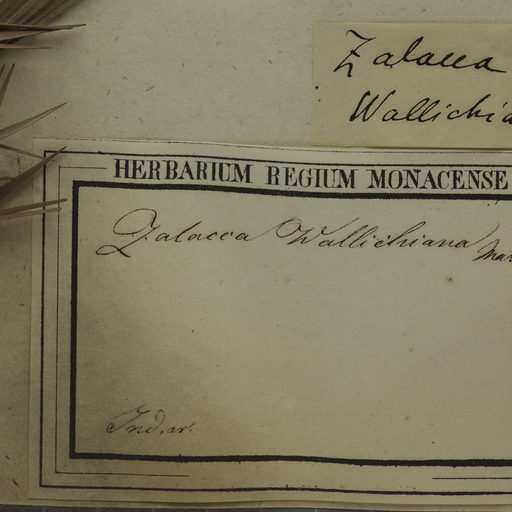 Zalacca
Wallichia
HERBARIUM REGIUM MONACENSE
Zalacca Wallichiana Mar
Ind. or.